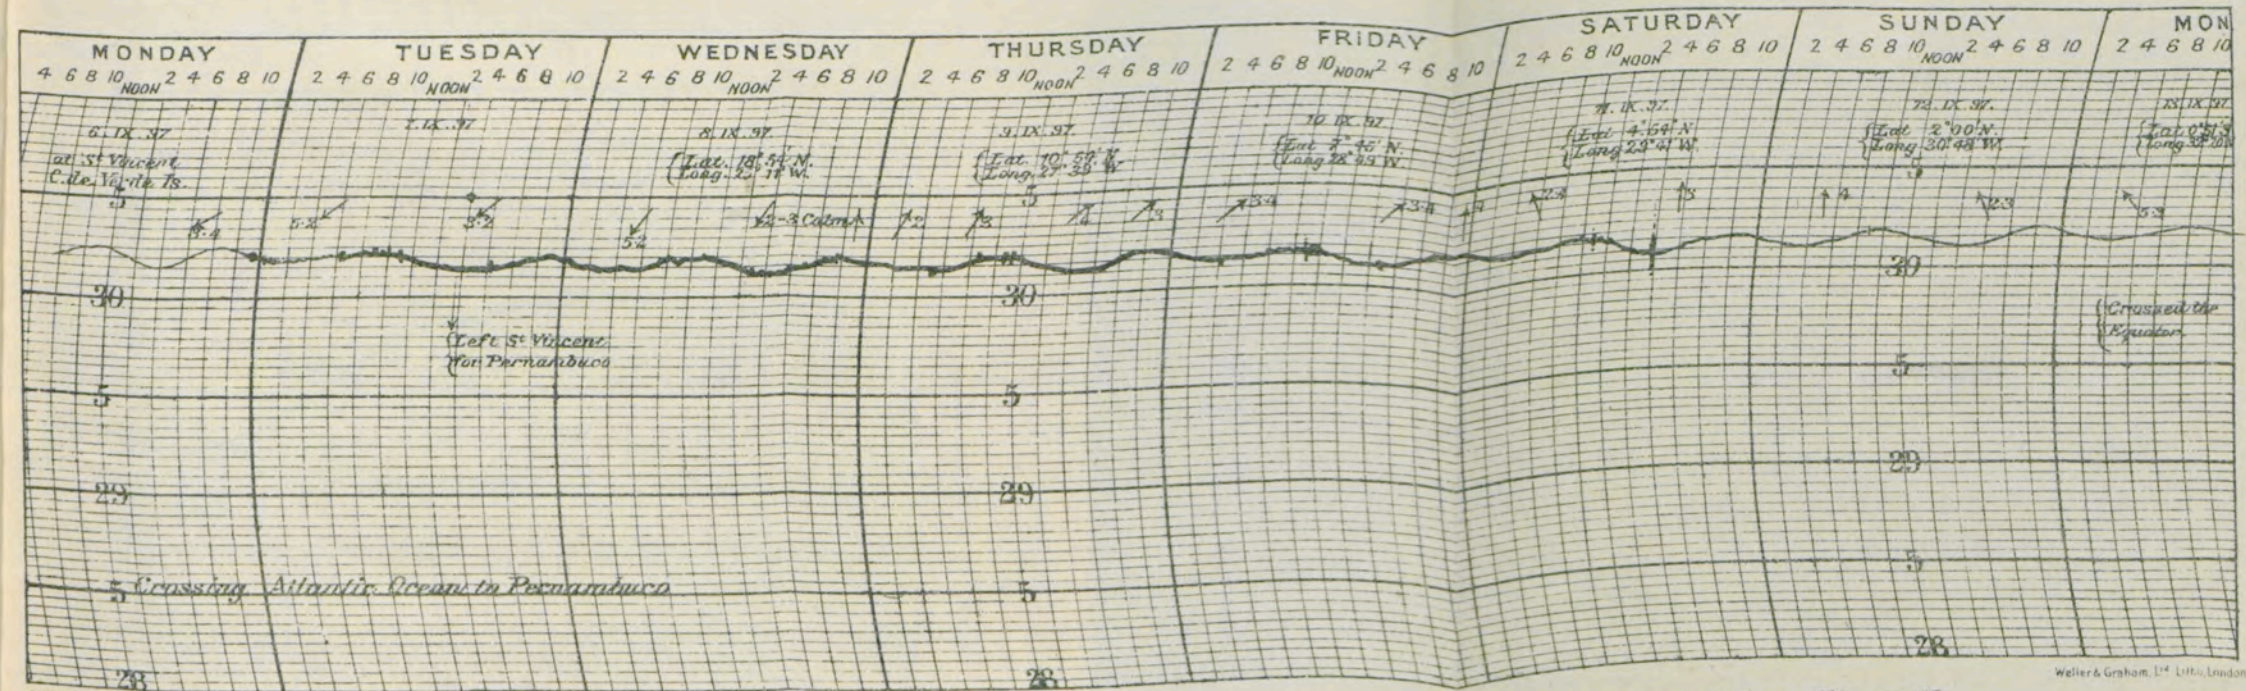 MONDAY
4 6 8 10 NOON 2 4 6 8 10
TUESDAY
2 4 6 8 10 NOON 2 4 6 8 10
WEDNESDAY
2 4 6 8 10 NOON 2 4 6 8 10
THURSDAY
2 4 6 8 10 NOON 2 4 6 8 10
FRIDAY
2 4 6 8 10 NOON 2 4 6 8 10
SATURDAY
2 4 6 8 10 NOON 2 4 6 8 10
SUNDAY
2 4 6 8 10 NOON 2 4 6 8 10
MON
2 4 6 8 10
6. IX. 97
at St Vincent
C. de Verde Is.
7. IX. 97
8. IX. 97
Lat. 54' N.
Long. 11' W.
9. IX. 97
Lat. 10°
Long. 27°
10. IX. 97
Lat 7° 45' N.
Long 28° 49' W.
11. IX. 97.
Lat 4° 54' N
Long 29° 41' W.
12. IX. 97.
Lat 2° 00' N.
Long 30° 48' W.
13. IX. 97
Lat 0° 51' S
Long 32° 20'
5 5 5
3-4 5-2 3-2 5-2 2-3 Calm 2 3 4 3 3-4 3-4 4 2-4 3 4 2-3
30 30 30
Left St Vincent
for Pernambuco
Crossed the
Equator
5 5 5
29 29 29
5 Crossing Atlantic Ocean to Pernambuco 5 5
28 28 28
Weller & Graham, Ltd Litho, London